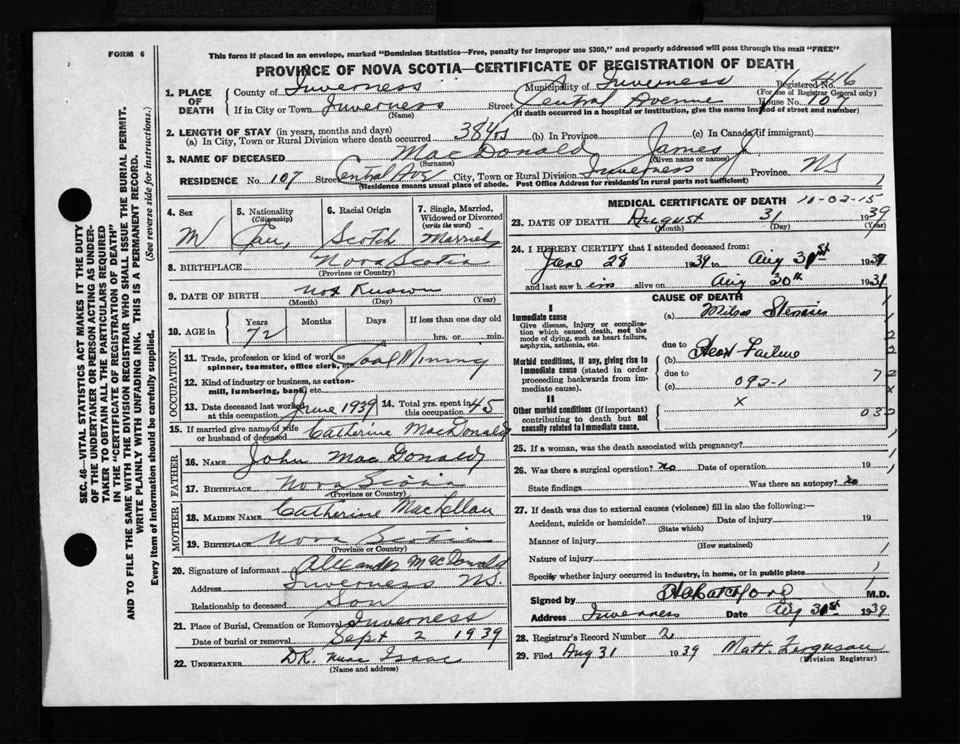 FORM 6
This form if placed in an envelope, marked "Dominion Statistics—Free, penalty for improper use $300," and properly addressed will pass through the mail "FREE"
PROVINCE OF NOVA SCOTIA—CERTIFICATE OF REGISTRATION OF DEATH
SEC. 46—VITAL STATISTICS ACT MAKES IT THE DUTY
OF THE UNDERTAKER OR PERSON ACTING AS UNDER-
TAKER TO OBTAIN ALL THE PARTICULARS REQUIRED
IN THE "CERTIFICATE OF REGISTRATION OF DEATH"
AND TO FILE THE SAME WITH THE DIVISION REGISTRAR WHO SHALL ISSUE THE BURIAL PERMIT.
WRITE PLAINLY WITH UNFADING INK. THIS IS A PERMANENT RECORD.
Every item of information should be carefully supplied. (See reverse side for instructions.)
1. PLACE OF DEATH
County of Inverness Municipality of Inverness Registered No. 416
(For use of Registrar General only)
If in City or Town Inverness Street Central Avenue House No. 107
(Name) (If death occurred in a hospital or institution, give the name instead of street and number)
2. LENGTH OF STAY (in years, months and days)
(a) In City, Town or Rural Division where death occurred 38 yrs (b) In Province (c) In Canada (if immigrant)
3. NAME OF DECEASED MacDonald James J.
(Surname) (Given name or names)
RESIDENCE No. 107 Street Central Ave City, Town or Rural Division Inverness Province NS
(Residence means usual place of abode. Post Office Address for residents in rural parts not sufficient)
4. Sex M
5. Nationality (Citizenship) Can.
6. Racial Origin Scotch
7. Single, Married, Widowed or Divorced (write the word) Married
8. BIRTHPLACE Nova Scotia
(Province or Country)
9. DATE OF BIRTH Not Known
(Month) (Day) (Year)
10. AGE in Years 72 Months Days If less than one day old hrs. or min.
OCCUPATION
11. Trade, profession or kind of work as spinner, teamster, office clerk, etc. Coal Mining
12. Kind of industry or business, as cotton-mill, lumbering, bank, etc.
13. Date deceased last worked at this occupation June 1939 14. Total yrs. spent in this occupation 45
15. If married give name of wife or husband of deceased Catherine MacDonald
FATHER
16. NAME John MacDonald
17. BIRTHPLACE Nova Scotia
(Province or Country)
MOTHER
18. MAIDEN NAME Catherine MacLellan
19. BIRTHPLACE Nova Scotia
(Province or Country)
20. Signature of informant Alexander MacDonald
Address Inverness N.S.
Relationship to deceased Son
21. Place of Burial, Cremation or Removal Inverness
Date of burial or removal Sept 2 1939
22. UNDERTAKER D.R. Isaac
(Name and address)
MEDICAL CERTIFICATE OF DEATH 10-02-15
23. DATE OF DEATH August 31 1939
(Month) (Day) (Year)
24. I HEREBY CERTIFY that I attended deceased from:
June 28 1939 to Aug 31st 1939
and last saw him alive on Aug 30th 1931
CAUSE OF DEATH
I
Immediate cause
Give disease, injury or complication which caused death, not the mode of dying, such as heart failure, asphyxia, asthenia, etc.
(a) Mitral Stenosis
due to
Morbid conditions, if any, giving rise to immediate cause (stated in order proceeding backwards from immediate cause).
(b) Heart Failure
due to
(c) 092-1
II
Other morbid conditions (if important) contributing to death but not causally related to immediate cause.
x
25. If a woman, was the death associated with pregnancy?
26. Was there a surgical operation? no Date of operation 19
State findings Was there an autopsy? no
27. If death was due to external causes (violence) fill in also the following:—
Accident, suicide or homicide? Date of injury 19
(State which)
Manner of injury
(How sustained)
Nature of injury
Specify whether injury occurred in industry, in home, or in public place
Signed by M.D.
Address Inverness Date Aug 31st 1939
28. Registrar's Record Number 2
29. Filed Aug 31 1939 Matt. Ferguson
(Division Registrar)